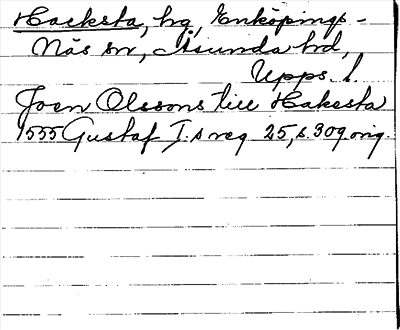 Hacksta, hg, Enköpings-
Näs sn, Åsunda hd,
Upps. l.
Joen Olssons till Hakesta
1555 Gustaf I:s reg 25, s. 309 orig.